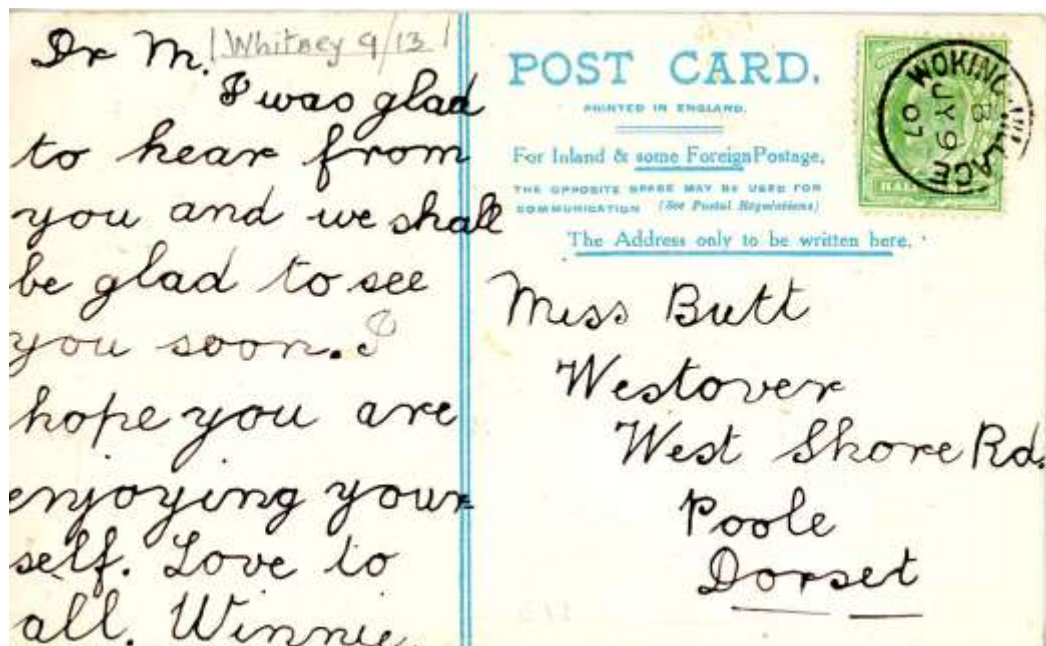 Dr M.
Whitney 9/13
I was glad
to hear from
you and we shall
be glad to see
you soon. I
hope you are
enjoying your-
self. Love to
all. Winnie.
POST CARD.
PRINTED IN ENGLAND.
For Inland & some Foreign Postage,
THE OPPOSITE SPACE MAY BE USED FOR
COMMUNICATION (See Postal Regulations)
The Address only to be written here.
WOKING VILLAGE
B
JY 9
07
Miss Butt
Westover
West Shore Rd.
Poole
Dorset